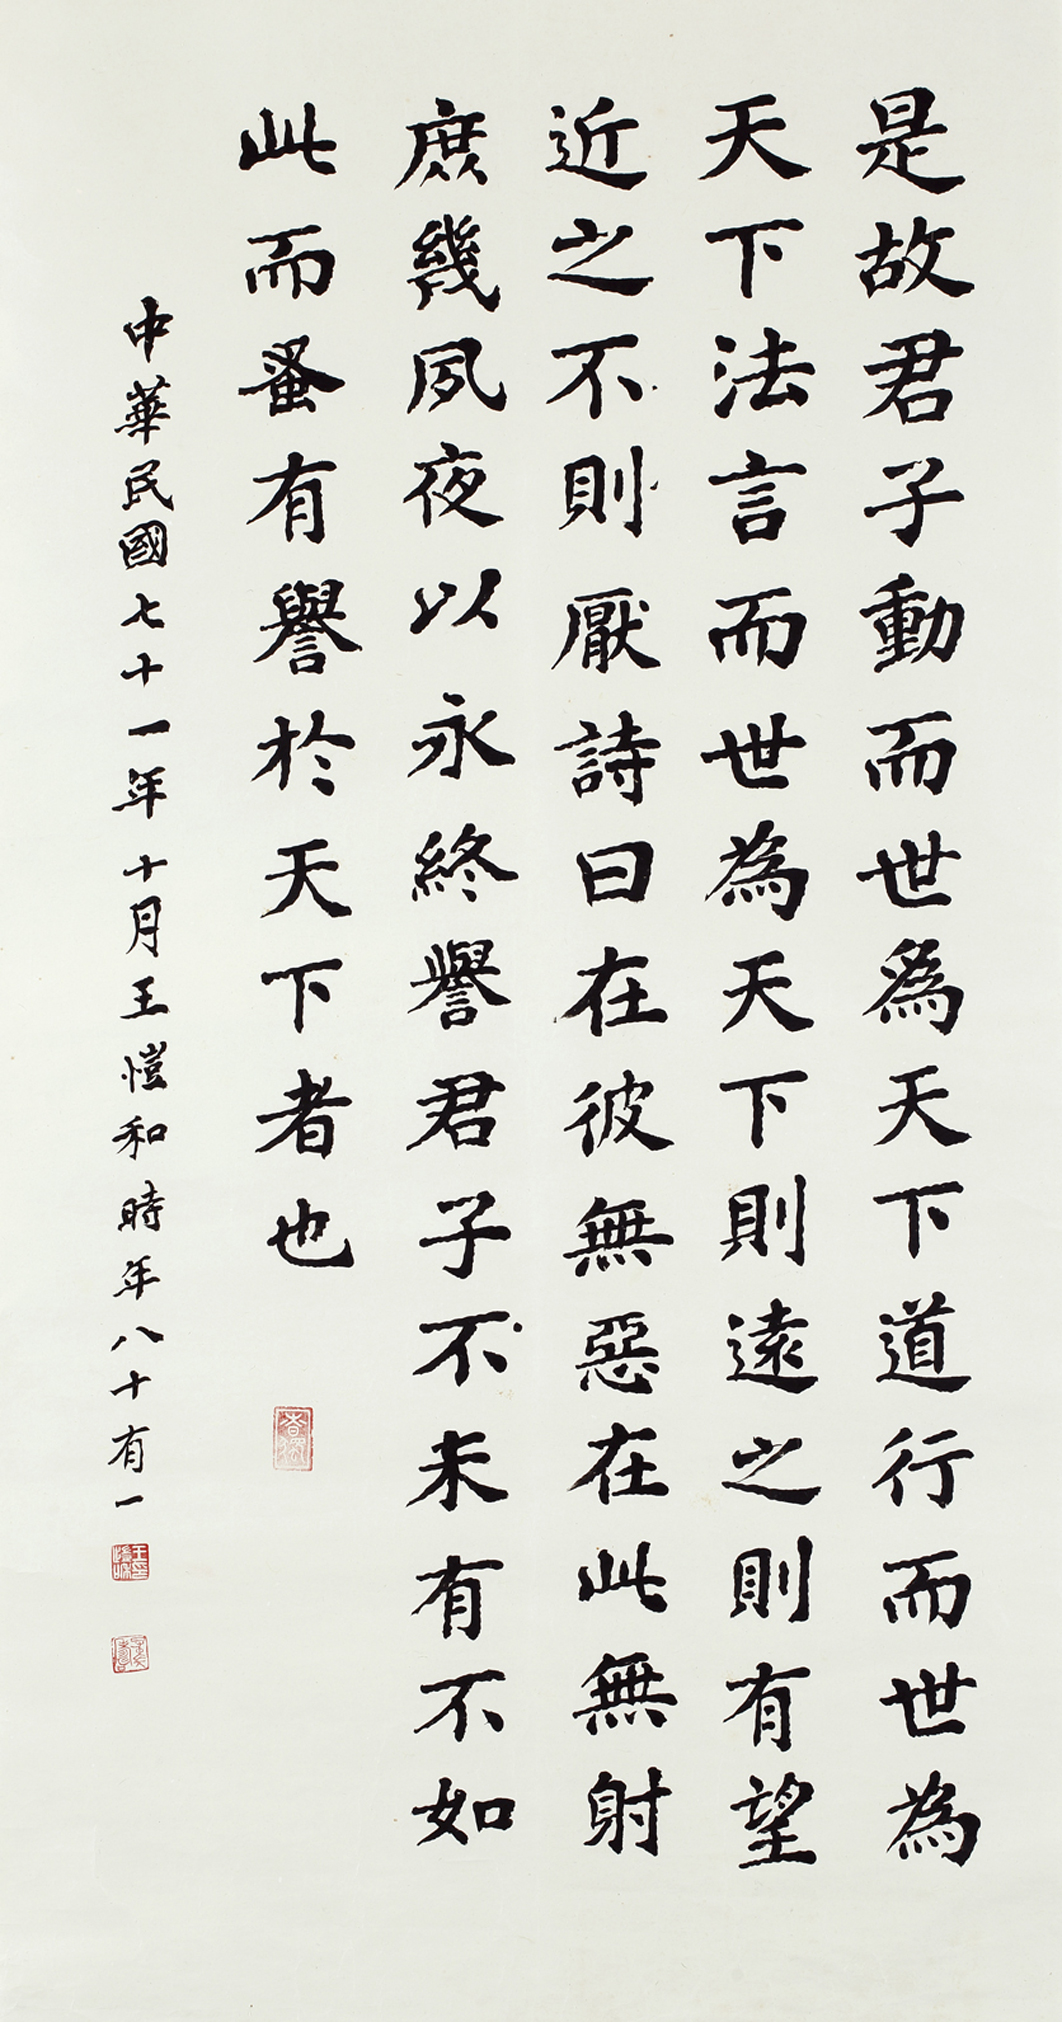 是故君子動而世為天下道行而世為
天下法言而世為天下則遠之則有望
近之不則厭詩曰在彼無惡在此無射
庶幾夙夜以永終譽君子不未有不如
此而蚤有譽於天下者也
中華民國七十一年十月王愷和時年八十有一